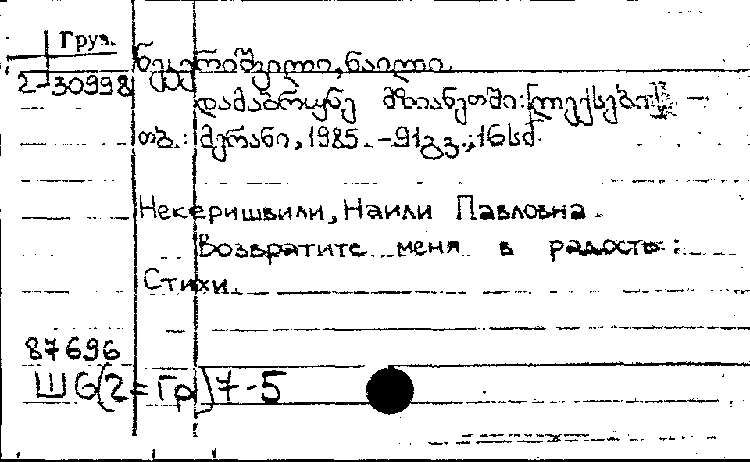 Груз.
2-30998
ნეკერიშვილი, ნაილი
დამაბრუნე მზიანეთში: [ლექსები] —
თბ.: მერანი, 1985. - 91გვ.; 16სმ.
Некеришвили, Наили Павловна.
Возвратите меня в радость:
Стихи.
87696
Ш6(2=Гр)7-5